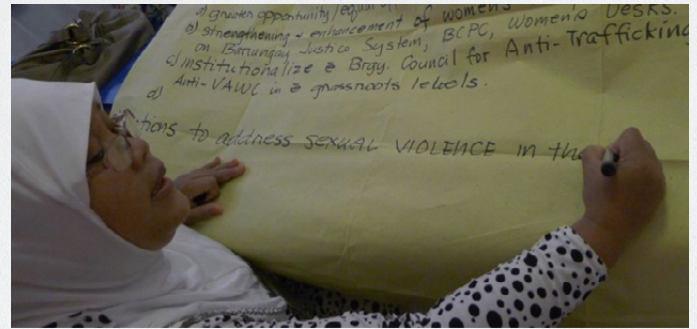 a) greater opportunity/equal
b) strengthening + enhancement of women's
on Barangay Justice System, BCPC, Women's Desks.
c) institutionalize Brgy. Council for Anti-Trafficking
d) Anti-VAWC in grassroots levels.
tions to address SEXUAL VIOLENCE in the